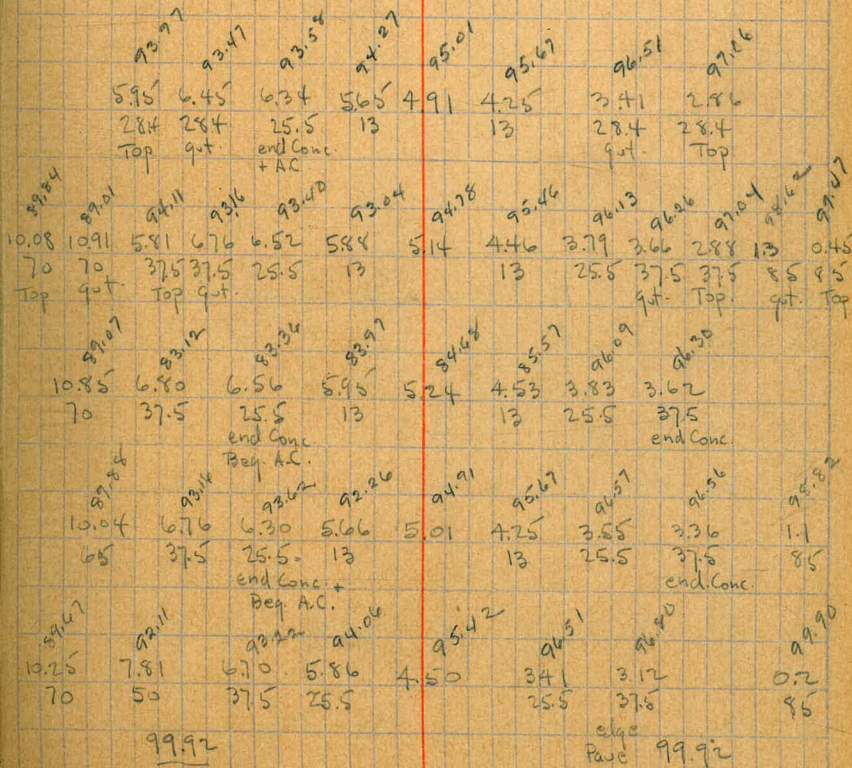 93.97 93.47 93.58 94.27 95.01 95.67 96.51 97.06
5.95 6.45 6.34 5.65 4.91 4.25 3.41 2.86
28.4 28.4 25.5 13 13 28.4 28.4
Top gut. end Conc. gut. Top
+ A.C
89.84 89.01 94.11 93.16 93.40 93.04 94.78 95.46 96.13 96.26 97.04 98.62 99.47
10.08 10.91 5.81 6.76 6.52 5.88 5.14 4.46 3.79 3.66 2.88 1.3 0.45
70 70 37.5 37.5 25.5 13 13 25.5 37.5 37.5 85 85
Top gut. Top gut. gut. Top. gut. Top
89.07 83.12 83.36 83.97 84.68 85.57 96.09 96.30
10.85 6.80 6.56 5.95 5.24 4.53 3.83 3.62
70 37.5 25.5 13 13 25.5 37.5
end Conc. end Conc.
Beg. A.C.
89.88 93.16 93.62 92.26 94.91 95.67 96.57 96.56 98.82
10.04 6.76 6.30 5.66 5.01 4.25 3.55 3.36 1.1
65 37.5 25.5 13 13 25.5 37.5 85
end Conc. + end. Conc.
Beg. A.C.
89.67 92.11 93.22 94.06 95.42 96.51 96.80 99.90
10.25 7.81 6.70 5.86 4.50 3.41 3.12 0.2
70 50 37.5 25.5 25.5 37.5 85
edge
99.92 Pave 99.92